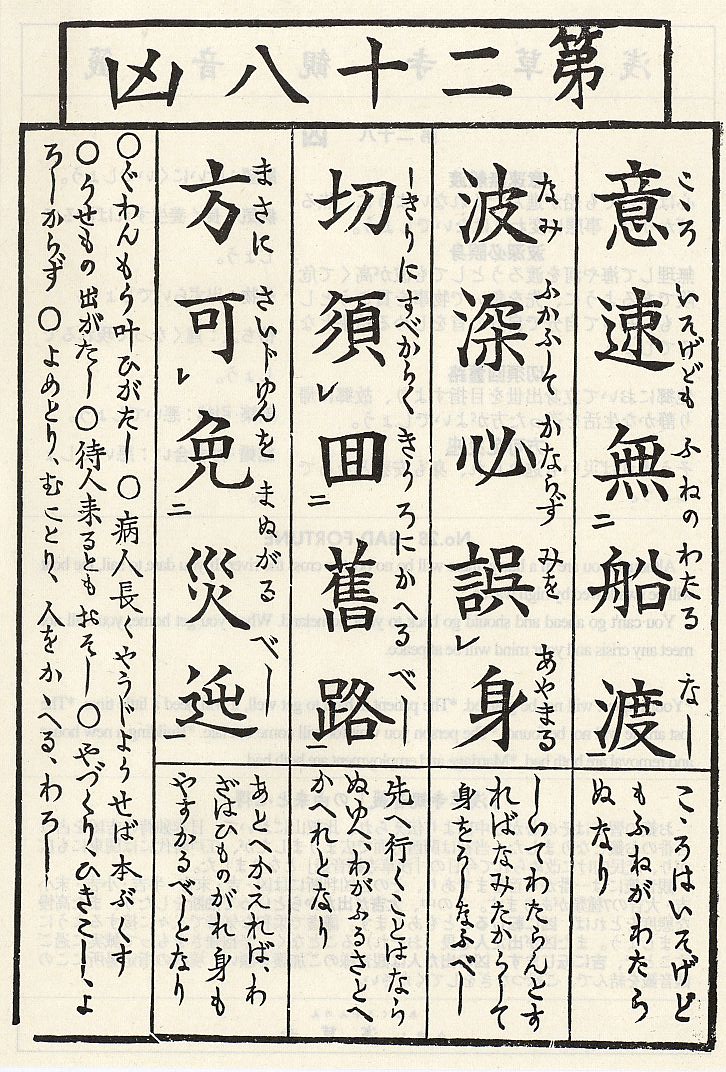 第二十八凶
意速無二船渡一
こころ いそげども ふねの わたる なし
こころはいそげど
もふねがわたら
ぬなり
波深必誤レ身
なみ ふかふして かならず みを あやまる
しいてわたらんとす
ればなみたからして
身をそこなふべし
切須レ回二舊路一
しきりにすべからく きうろにかへる べし
先へ行くことはなら
ぬゆへわがふるさとへ
かへれとなり
方可レ免二災迍
まさに さいじゆんを まぬがる べし
あとへかえれば、わ
ざはひものがれ身も
やすかるべしとなり
〇ぐわんもう叶ひがたし 〇病人長くやうじようせば本ぶくす
〇うせもの出がたし 〇待人来るともおそし 〇やづくり、ひきこし、よ
ろしからず 〇よめとり、むことり、人をかゝへる、わろし